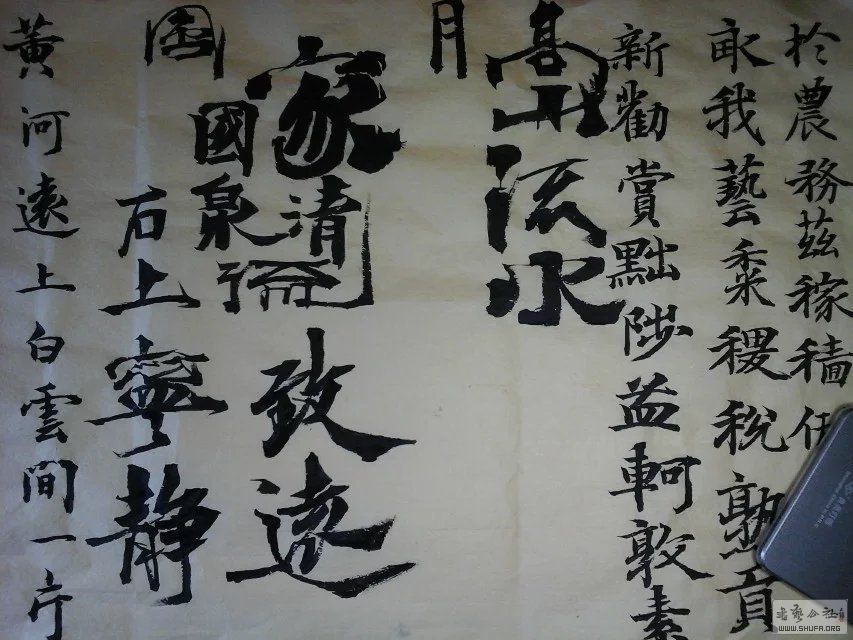 於農務茲稼穡
畝我藝黍稷稅熟貢
新勸賞黜陟孟軻敦素
高山流水
月
家清
致遠
國泉
國
右上寧靜
黃河遠上白雲間一片
書藝公社
WWW.SHUFA.ORG